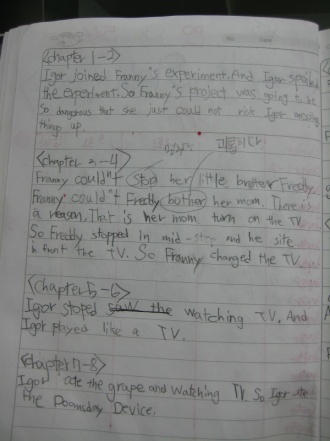 <chapter 1-2>
Igor joined Franny's experiment. And Igor spoiled
the experiment. So Franny's project was going to be
so dangerous that she just could not risk Igor messing
things up.
괴롭히다
<chapter 3-4>
Franny could"t stop her little brother Freddy
Franny could"t Freddy bother her mom. There is
a reason. That is her mom turn on the TV.
So Freddy stopped in mid-step and he site
in front the TV. So Franny changed the TV.
<chapter 5-6>
Igor stoped saw the watching TV. And
Igor played like a TV.
<chapter 7-8>
Igor ate the grape and watching TV. So Igor ate
the Doomday Device.